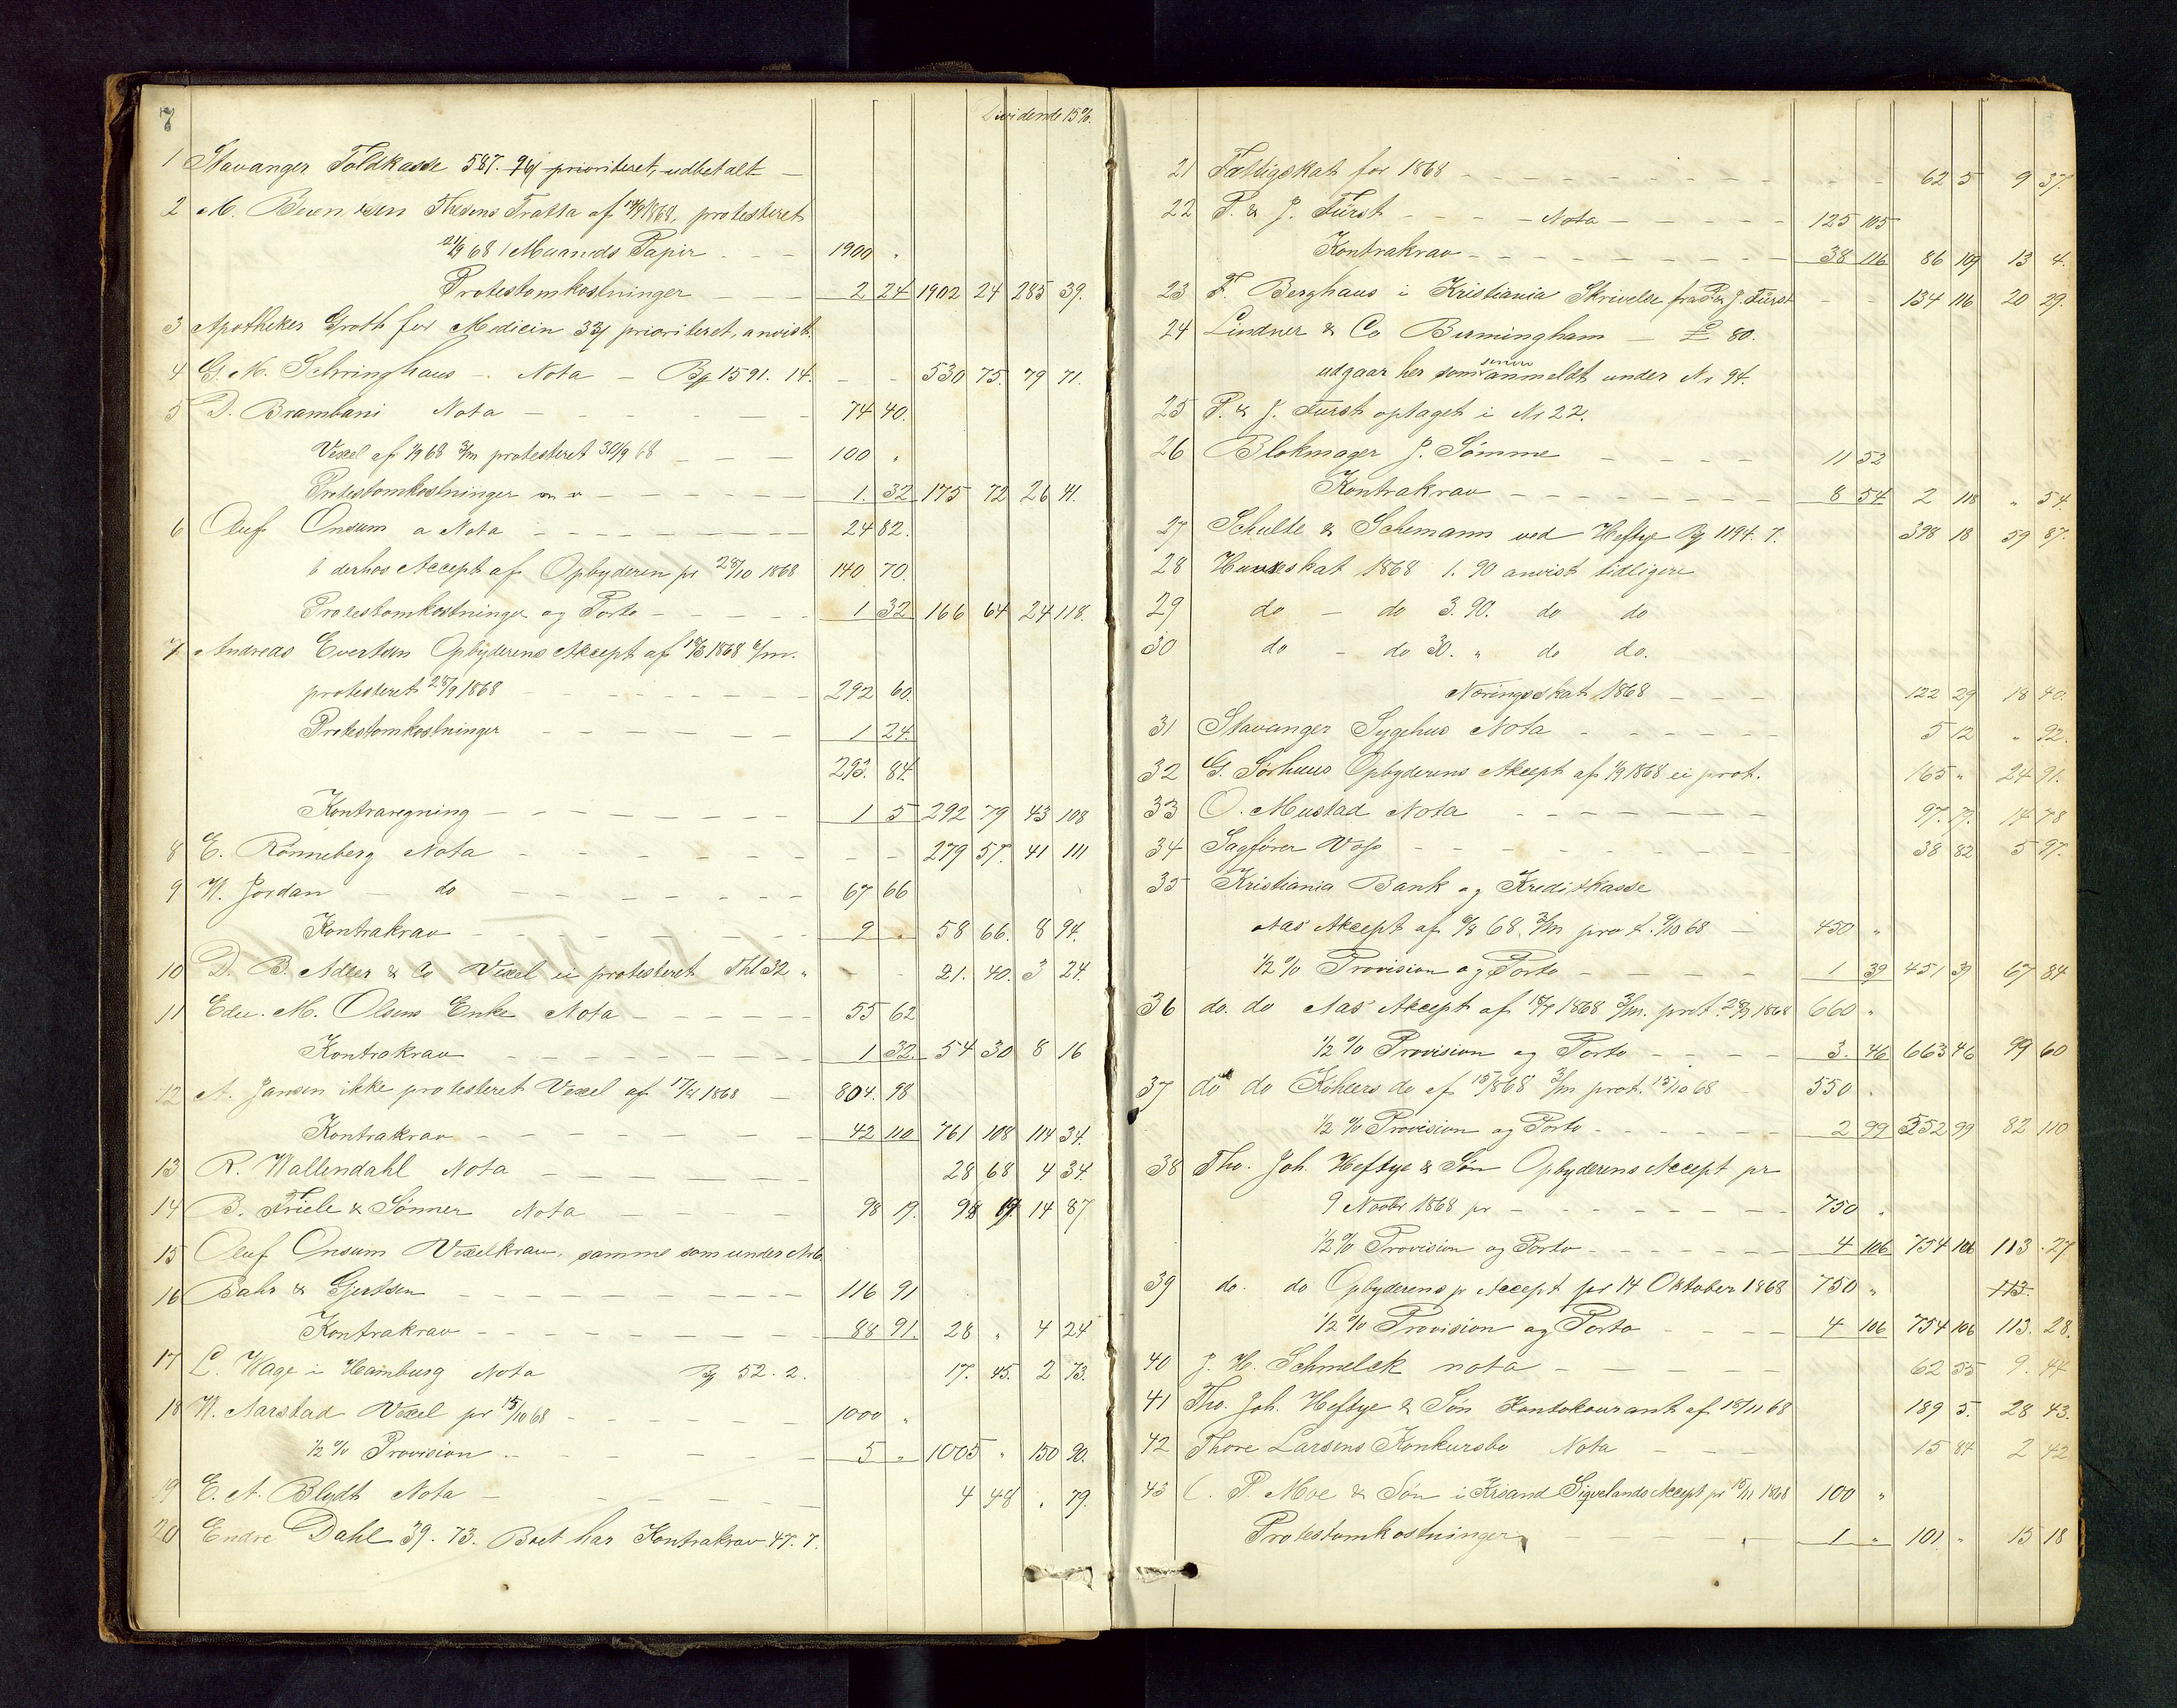 7
Dividende 15%.
1 Stavanger Toldkasse 587. 96/ prioriteret, udbetalt —
2 M. Berentsen Thesens Tratta af 14/9 1868, protesteret
21/9 68 1 Maaneds Papir - - - 1900 "
Protestomkostninger — — 2 24 1902 24 285 39.
3 Apotheker Groth for Medicin 33/ prioriteret, anvist.
4 G. M. Schringhaus - Nota - B# 1591. 14. - - 530 75. 79 71.
5 D. Brambani Nota — 74 40.
Vexel af 1/9 68 3/m protesteret 30/9 68 — — — 100 "
Protestomkostninger — 1. 32 175 72 26 41.
6 Oluf Onsum a Nota — 24 82.
b derhos Accept af Opbyderen pr 28/10 1868 140 70.
Protestomkostninger og Porto — 1 32 166 64 24 118.
7. Andreas Evertsen Opbyderens Akcept af 18/3 1868 6/m.
protesteret 28/9 1868 — 292 60.
Protestomkostninger — 1 24.
293. 84.
Kontraregning — 1 5 292 79 43 108
8 E. Rönneberg Nota — 279 57. 41 111
9 W. Jordan — do — 67 66
Kontrakrav — 9 " 58 66. 8 94.
10 D. B. Adler & Co Vexel ei protesteret Thl 32 " - - 21. 40. 3 24.
11 Edw. M. Olsens Enke Nota — 55 62
Kontrakrav — 1 32. 54 30 8 16
12 A. Jansen ikke protesteret Vexel af 1868 — 804. 98
Kontrakrav — 42 110 761 108 114 34.
13 R. Wallendahl Nota — 28 68 4 34.
14 B. Friele & Sönner Nota — 98 19. 98 19. 14 87
15 Oluf Onsum Vexelkrav, samme som under No 6
16 Bahr & Gjertsen — 116 91
Kontrakrav — 88 91. 28 " 4 24
17 L. Wage i Hamburg Nota B# 52. 2. 17. 45. 2 73.
18 W. Aarstad Vexel pr 15/10 68 — 1000 "
1/2 % Provision — 5 " 1005 " 150 90.
19 E. A. Blydt Nota — 4 48 " 79.
20 Endre Dahl 39. 73. Boet har Kontrakrav 47. 7.
21 Fattigskat for 1868 — 62 5 9 37.
22 P. & J. Fürst - - - - Nota — 125 105
Kontrakrav — 38 116 86 109 13 4.
23 F. Berghaus i Kristiania Skrivelse fra P & J. Fürst - - 134 116 20 29.
24 Lindner & Co Birmingham — £ 80.
udgaar her som senere anmeldt under No 94.
25 P. & J. Fürst optaget i No 22.
26 Blokmager J. Sömme — 11 52
Kontrakrav — 8 54 2 118 " 54.
27 Schulte & Schemann ved Heftye B# 1194. 7. 398 18 59 87.
28 Huusskat 1868 1. 90 anvist tidligere
29 do - do 3. 90. do do
30 do - do 30. " do do.
Næringsskat 1868 — 122 29 18 40.
31 Stavanger Sygehus Nota — 5 12 " 92.
32 G. Sörhuus Opbyderens Akcept af 1/9 1868 ei prot. 165 " 24 91.
33 O. Mustad Nota — 97. 17. 14 78
34 Sagförer Voss — 38 82 5 97.
35 Kristiania Bank og Kreditkasse
Aas' Akcept af 6/8 68. 3/m prot. 9/10 68 — 450 "
1/2 % Provision og Porto — 1 39 451 39 67 84
36 do. do Aas' Akcept af 18/7 1868 3/m. prot. 28/9 1868 660 "
1/2 % Provision og Porto — 3. 46 663 46 99 60
37 do do Köhlers do af 15/8 68 3/m prot. 15/10 68 550 "
1/2 % Provision og Porto — 2 99 552 99 82 110
38 Tho. Joh. Heftye & Sön Opbyderens Accept pr
9 Novbr 1868 pr — 750 "
1/2 % Provision og Porto — 4 106 754 106 113 . 27
39 do. do Opbyderens pr Accept pr 14 Oktober 1868 750 " 113
1/2 % Provision og Porto — 4 106 754 106 113. 28.
40 J. H. Schmelck nota — 62 55 9. 44
41 Tho. Joh. Heftye & Sön Kontokourant af 13/11 68 189 5. 28 43.
42 Thore Larsens Konkursbo Nota — 15 84 2 42
43 C. P. Moe & Sön i Krsand Sigvelands Accept pr 15/11 1868 100 "
Protestomkostninger — 1 " 101 " 15 18